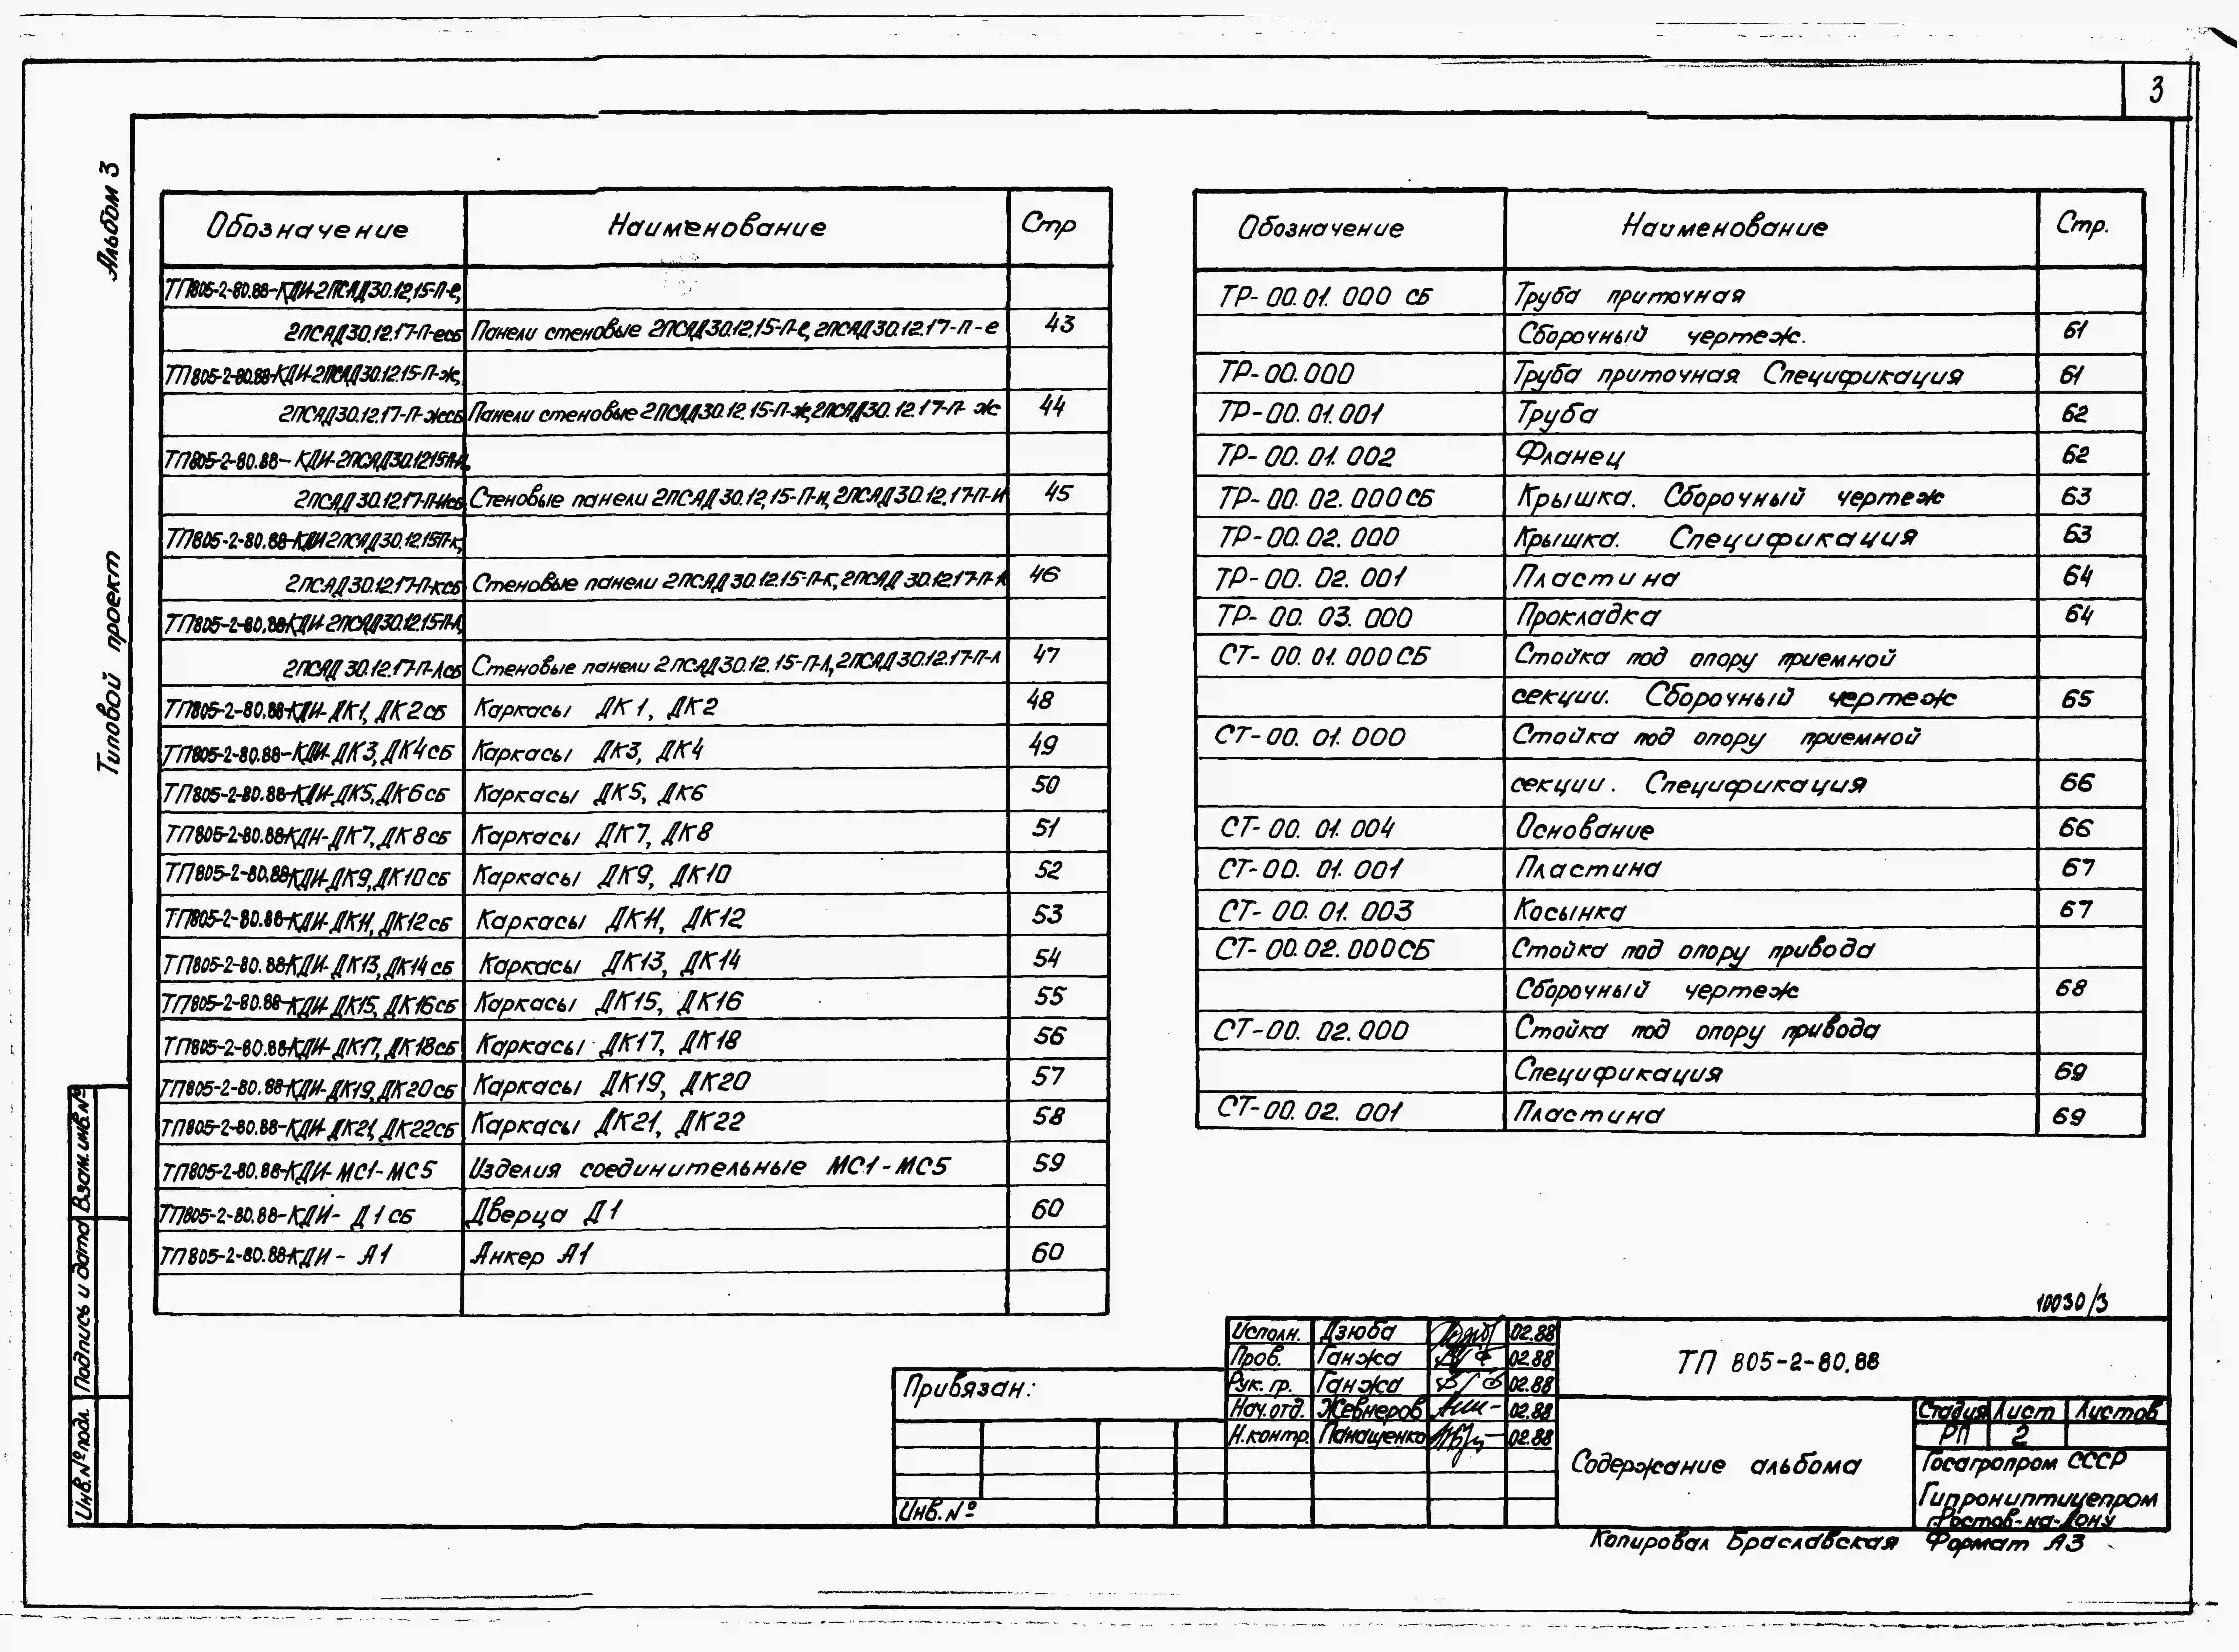 3
Альбом 3
Типовой проект
Обозначение Наименование Стр
ТП805-2-80.88-КДИ-2ПСАД30.12.15-П-е,
2ПСАД30.12.17-П-есб Панели стеновые 2ПСАД30.12.15-П-е, 2ПСАД30.12.17-П-е 43
ТП805-2-80.88-КДИ-2ПСАД30.12.15-П-ж,
2ПСАД30.12.17-П-жсб Панели стеновые 2ПСАД30.12.15-П-ж, 2ПСАД30.12.17-П-ж 44
ТП805-2-80.88-КДИ-2ПСАД30.12.15П-и,
2ПСАД30.12.17-П-исб Стеновые панели 2ПСАД30.12.15-П-и, 2ПСАД30.12.17-П-и 45
ТП805-2-80.88-КДИ 2ПСАД30.12.15П-к,
2ПСАД30.12.17-П-ксб Стеновые панели 2ПСАД30.12.15-П-к, 2ПСАД30.12.17-П-к 46
ТП805-2-80.88-КДИ-2ПСАД30.12.15-П-л,
2ПСАД30.12.17-П-лсб Стеновые панели 2ПСАД30.12.15-П-л, 2ПСАД30.12.17-П-л 47
ТП805-2-80.88-КДИ-ДК1, ДК2сб Каркасы ДК1, ДК2 48
ТП805-2-80.88-КДИ-ДК3, ДК4сб Каркасы ДК3, ДК4 49
ТП805-2-80.88-КДИ-ДК5, ДК6сб Каркасы ДК5, ДК6 50
ТП805-2-80.88-КДИ-ДК7, ДК8сб Каркасы ДК7, ДК8 51
ТП805-2-80.88-КДИ-ДК9, ДК10сб Каркасы ДК9, ДК10 52
ТП805-2-80.88-КДИ-ДК11, ДК12сб Каркасы ДК11, ДК12 53
ТП805-2-80.88-КДИ-ДК13, ДК14сб Каркасы ДК13, ДК14 54
ТП805-2-80.88-КДИ-ДК15, ДК16сб Каркасы ДК15, ДК16 55
ТП805-2-80.88-КДИ-ДК17, ДК18сб Каркасы ДК17, ДК18 56
ТП805-2-80.88-КДИ-ДК19, ДК20сб Каркасы ДК19, ДК20 57
ТП805-2-80.88-КДИ-ДК21, ДК22сб Каркасы ДК21, ДК22 58
ТП805-2-80.88-КДИ-МС1-МС5 Изделия соединительные МС1-МС5 59
ТП805-2-80.88-КДИ- Д1сб Дверца Д1 60
ТП805-2-80.88-КДИ - А1 Анкер А1 60
Обозначение Наименование Стр.
ТР-00.01.000 СБ Труба приточная
Сборочный чертеж. 61
ТР-00.000 Труба приточная Спецификация 61
ТР-00.01.001 Труба 62
ТР-00.01.002 Фланец 62
ТР-00.02.000СБ Крышка. Сборочный чертеж 63
ТР-00.02.000 Крышка. Спецификация 63
ТР-00.02.001 Пластина 64
ТР-00.03.000 Прокладка 64
СТ-00.01.000СБ Стойка под опору приемной
секции. Сборочный чертеж 65
СТ-00.01.000 Стойка под опору приемной
секции. Спецификация 66
СТ-00.01.004 Основание 66
СТ-00.01.001 Пластина 67
СТ-00.01.003 Косынка 67
СТ-00.02.000СБ Стойка под опору привода
Сборочный чертеж 68
СТ-00.02.000 Стойка под опору привода
Спецификация 69
СТ-00.02.001 Пластина 69
10030/3
Исполн. Дзюба 02.88
Пров. Ганжа 02.88
Рук. гр. Ганжа 02.88
Нач.отд. Жевнеров 02.88
Н.контр. Панащенко 02.88
Привязан:
Инв.№
ТП 805-2-80.88
Содержание альбома
Стадия Лист Листов
РП 2
Госагропром СССР
Гипрониптицепром
г.Ростов-на-Дону
Копировал Браславская Формат А3
Взам.инв.№
Подпись и дата
Инв.№подл.